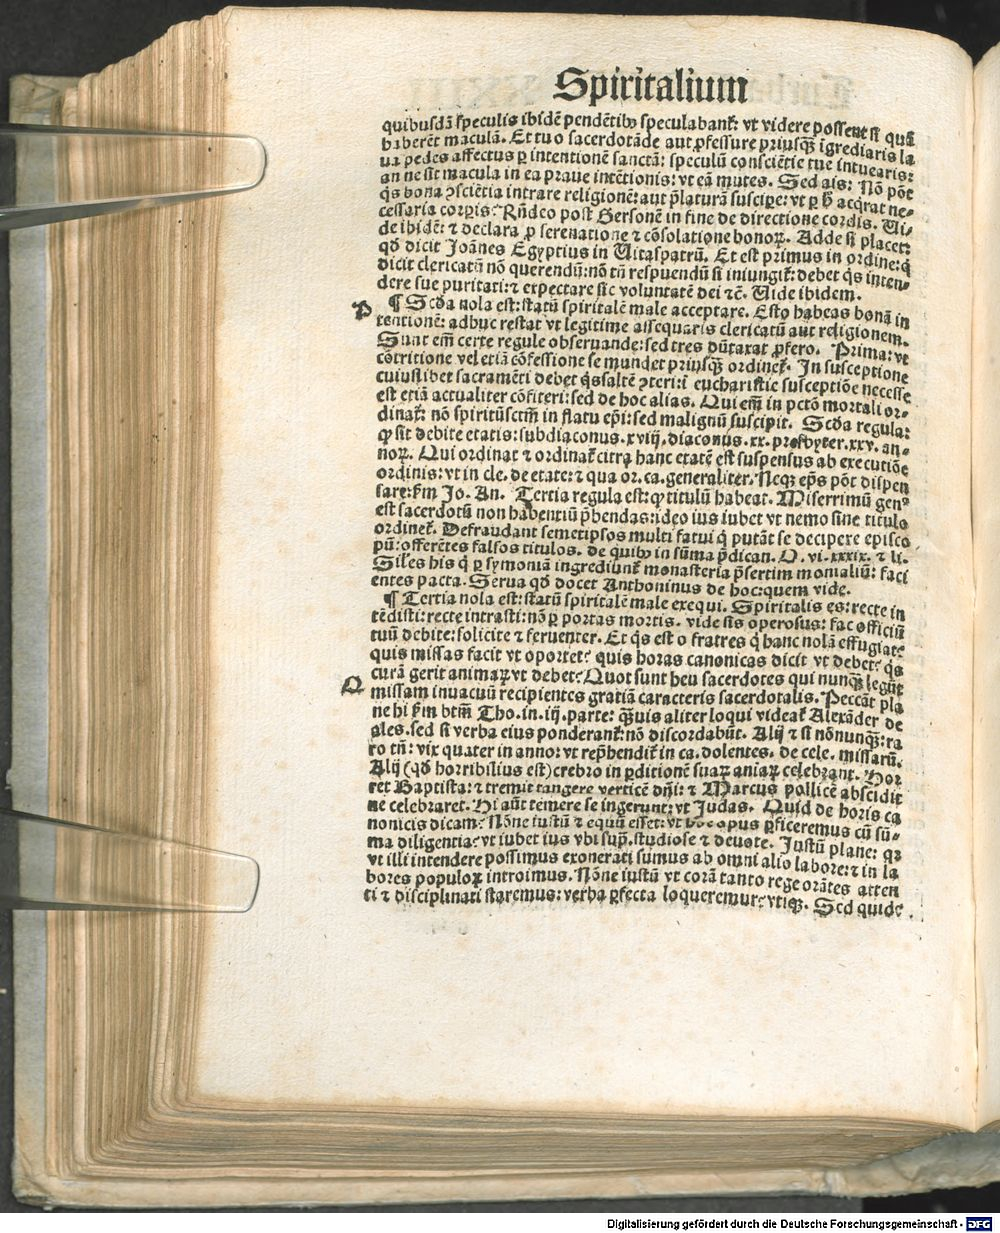 Spiritalium
quibusdā speculis ibidē pendētibꝰ speculabant᷑: vt videre possent si quā
haberēt maculā. Et tu o sacerdotāde aut ꝓfessure priusꝙ̄ īgrediaris la
ua pedes affectus ꝑ intentionē sanctā: speculū consciētie tue intuearis:
an ne sit macula in ea praue intētionis: vt eā mutes. Sed ais: Nō pōt
q̄s bona ɔsciētia intrare religionē: aut p̄laturā suscipe: vt ꝑ h̄ acq̄rat ne⸗
cessaria corꝑis: Rn̄deo post Gersonē in fine de directione cordis. Ui⸗
de ibidē: ⁊ declara ꝓ serenatione ⁊ cōsolatione bonoꝝ. Adde si placet:
qd̄ dicit Joānes Egyptius in Uitaspatrū. Et est primus in ordine: q̄
dicit clericatū nō querendū: nō tn̄ respuendū si iniungit᷑: debet q̄s inten⸗
dere sue puritati: ⁊ expectare sic voluntatē dei ⁊c̄. Uide ibidem.
P ¶ Scd̄a nola est: statū spiritalē male acceptare. Esto habeas bonā in
tentionē: adhuc restat vt legitime assequaris clericatū aut religionem.
Sunt em̄ certe regule obseruande: sed tres dūtaxat ꝓfero. Prima: vt
cōtritione vel etiā cōfessione se mundet priusꝙ̄ ordinet᷑. In susceptione
cuiuslibet sacramēti debet q̄s saltē ɔteri: ī eucharistie susceptiōe necesse
est etiā actualiter cōfiteri: sed de hoc alias. Qui em̄ in pctō mortali or⸗
dinat᷑: nō spiritūsctm̄ in flatu ep̄i: sed malignū suscipit. Scd̄a regula:
ꝙ sit debite etatis: subdiaconus. xviij. diaconus. xx. presbyter. xxv. an⸗
noꝝ. Qui ordinat ⁊ ordinat᷑ citra hanc etatē est suspensus ab executiōe
ordinis: vt in cle. de etate: ⁊ qua or. ca. generaliter. Neqꝫ ep̄s pōt dispen
sare: s̄m Jo. An. Tertia regula est: ꝙ titulū habeat. Miserrimū genꝰ
est sacerdotū non habentiū p̄bendas: ideo ius iubet vt nemo sine titulo
ordinet᷑. Defraudant semetipsos multi fatui q̄ putāt se decipere episco
pū: offerētes falsos titulos. de quibꝰ in sūma p̄dican. O. vi. xxxix. ⁊ li.
Siles his q̄ ꝑ symoniā ingrediunt᷑ monasteria p̄sertim monialiū: faci
entes pacta. Serua qd̄ docet Anthoninus de hoc: quem vide.
¶ Tertia nola est: statū spiritalē male exequi. Spiritalis es: recte in
tēdisti: recte intrasti: nō ꝑ portas mortis. vide sis operosus: fac officiū
tuū debite: solicite ⁊ feruenter. Et q̄s est o fratres q̄ hanc nolā effugiat:
quis missas facit vt oportet: quis horas canonicas dicit vt debet: q̄s
curā gerit animaꝝ vt debet: Quot sunt heu sacerdotes qui nunqꝫ̄ legūt
Q missam inuacuū recipientes gratiā caracteris sacerdotalis. Peccāt pla
ne hi s̄m btm̄ Tho. in. iij. parte: ꝙ̄uis aliter loqui videat᷑ Alexāder de
ales. sed si verba eius ponderant᷑: nō discordabūt. Alij ⁊ si nōnunqꝫ̄: ra
ro tn̄: vix quater in anno: vt rep̄hendit᷑ in ca. dolentes. de cele. missarū.
Alij (qd̄ horribilius est) crebro in ꝑditionē suaꝝ aniaꝝ celebrant. Hor
ret Baptista: ⁊ tremit tangere verticē dn̄i: ⁊ Marcus pollicē abscidit
ne celebraret. Hi aūt temere se ingerunt: vt Judas. Quid de horis ca
nonicis dicam: Nōne iustū ⁊ equū esset: vt opus ꝑficeremus cū sū⸗
ma diligentia: vt iubet ius vbi sup̄. studiose ⁊ deuote. Justū plane: qꝛ
vt illi intendere possimus exonerati sumus ab omni alio labore: ⁊ in la
bores populoꝝ introimus. Nōne iustū vt corā tanto rege orātes atten
ti ⁊ disciplinati staremus: verba ꝑfecta loqueremur: vtiqꝫ. Sed quide
Digitalisierung gefördert durch die Deutsche Forschungsgemeinschaft - DFG